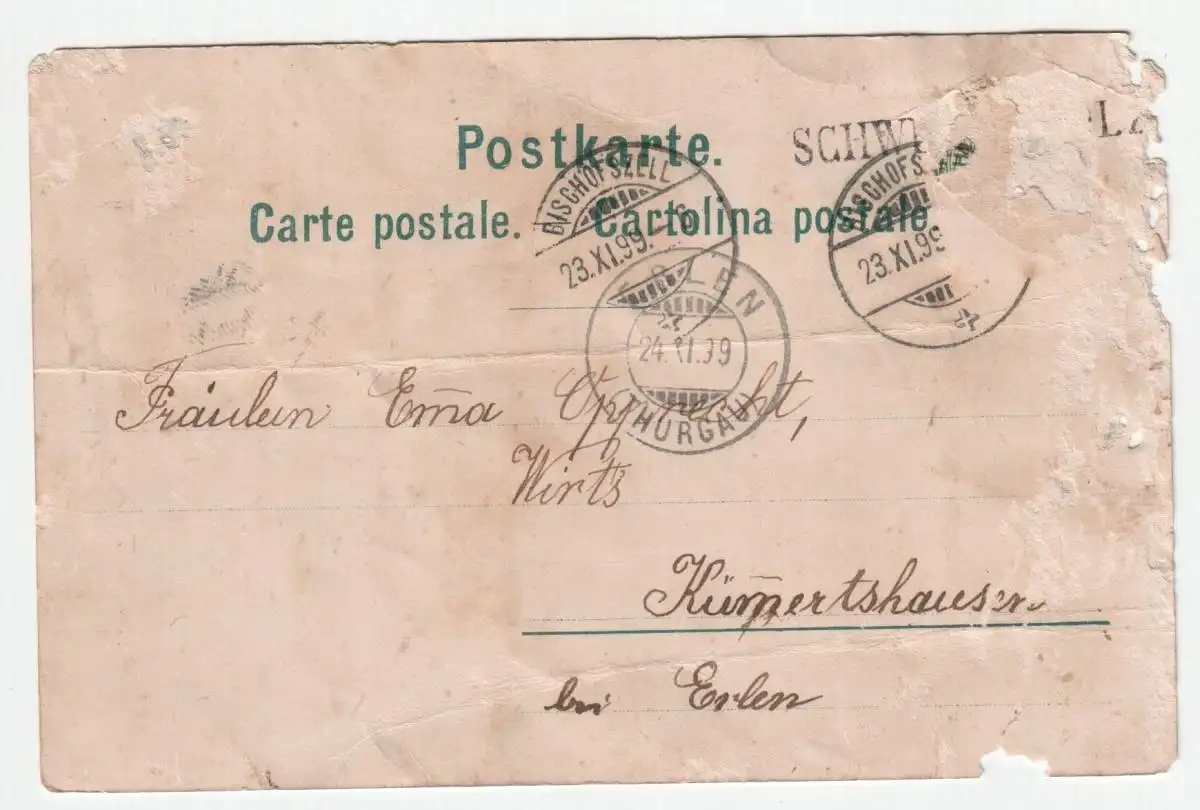 Postkarte.
SCHW
LZ
Carte postale. Cartolina postale
BISCHOFSZELL
23.XI.99. 6
BISCHOFS
23.XI.99
RLEN
24.XI.99
THURGAU
Fräulein Em̄a
Wirts
Küm̄ertshausen
bei Erlen